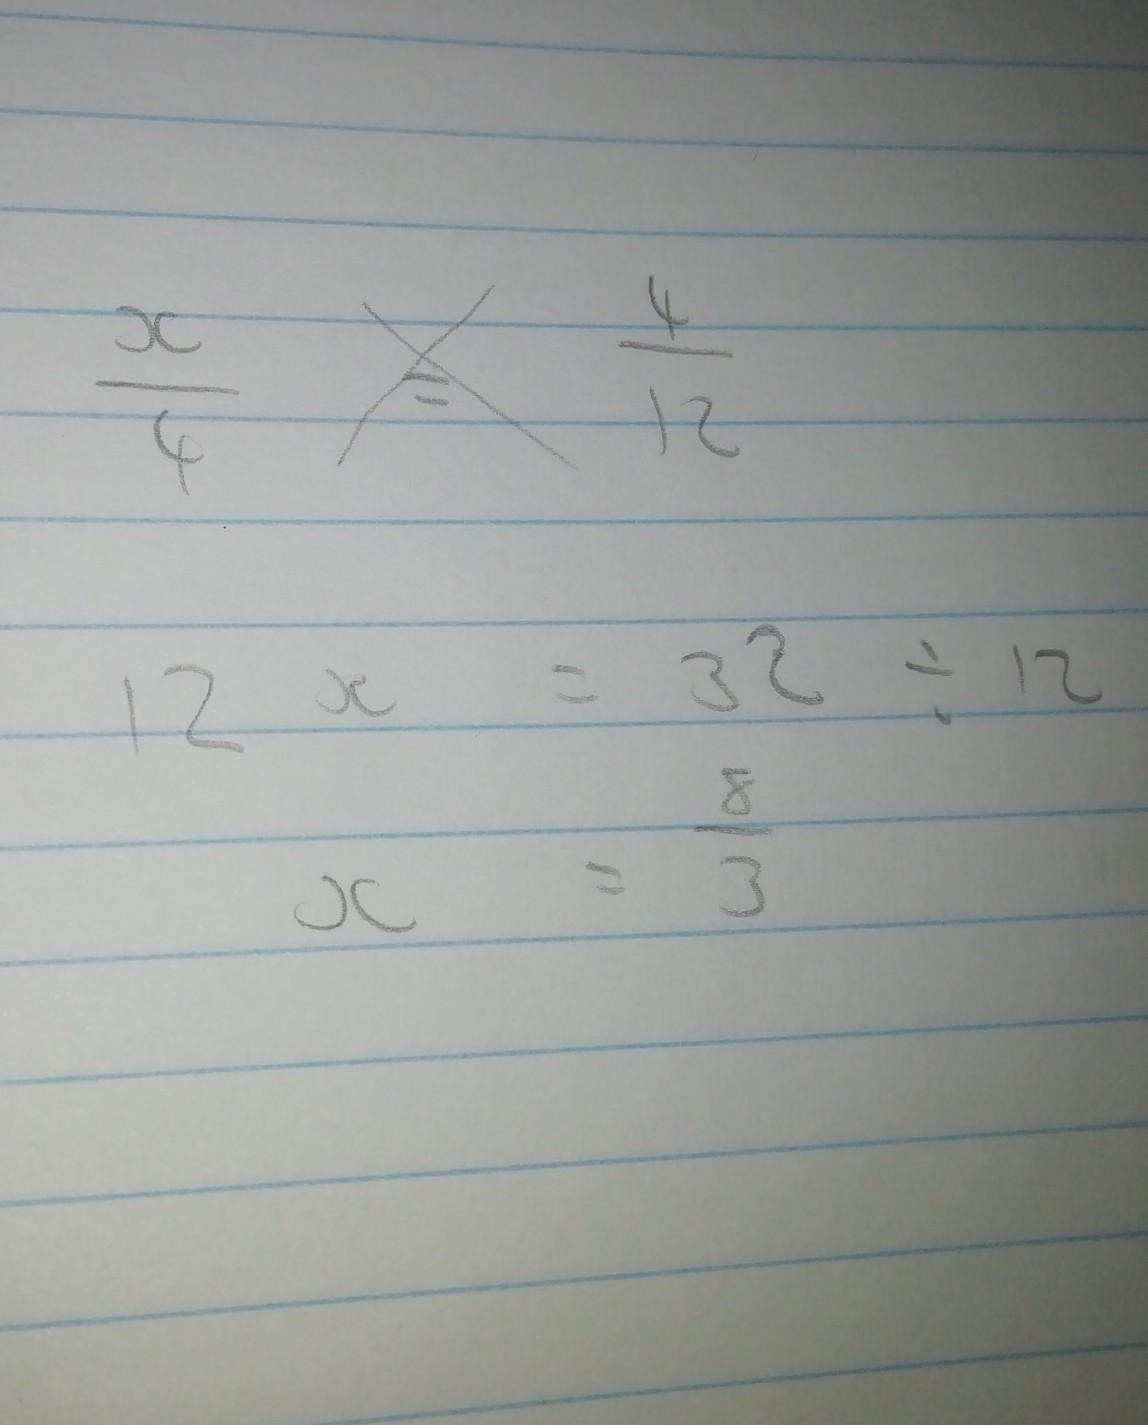 x/4 = 4/12
12 x = 32 ÷ 12
x = 8/3